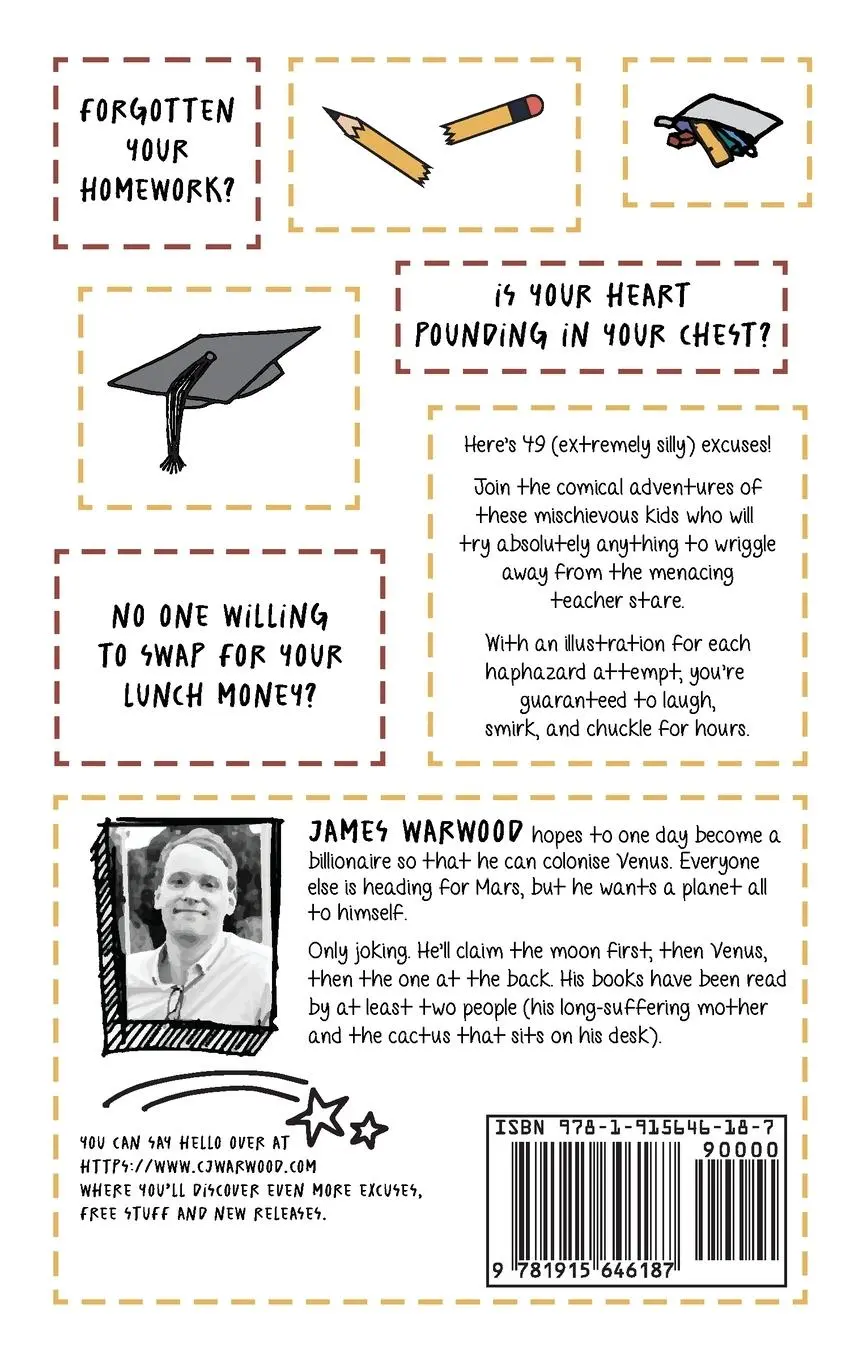 FORGOTTEN
YOUR
HOMEWORK?
iS YOUR HEART
POUNDiNG iN YOUR CHEST?
Here's 49 (extremely silly) excuses!
Join the comical adventures of
these mischievous kids who will
try absolutely anything to wriggle
away from the menacing
teacher stare.
With an illustration for each
haphazard attempt, you're
guaranteed to laugh,
smirk, and chuckle for hours.
NO ONE WiLLiNG
TO SWAP FOR YOUR
LUNCH MONEY?
JAMES WARWOOD hopes to one day become a
billionaire so that he can colonise Venus. Everyone
else is heading for Mars, but he wants a planet all
to himself.
Only joking. He'll claim the moon first, then Venus,
then the one at the back. His books have been read
by at least two people (his long-suffering mother
and the cactus that sits on his desk).
YOU CAN SAY HELLO OVER AT
HTTPS://WWW.CJWARWOOD.COM
WHERE YOU'LL DiSCOVER EVEN MORE EXCUSES,
FREE STUFF AND NEW RELEASES.
ISBN 978-1-915646-18-7
90000
9 781915 646187